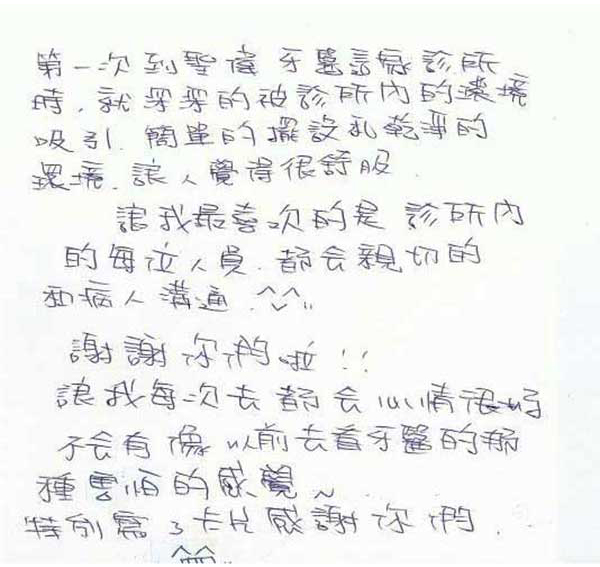 第一次到聖偉牙醫診所
時,就深深的被診所內的環境
吸引.簡單的擺設和乾淨的
環境.讓人覺得很舒服.
讓我最喜次的是診所內
的每位人員.都会親切的
和病人溝通.^^..
謝謝你們啦!!
讓我每次去都会心情很好
不会有像以前去看牙醫的那
種害怕的感覺~
特別寫了卡片感謝你們.
^^..